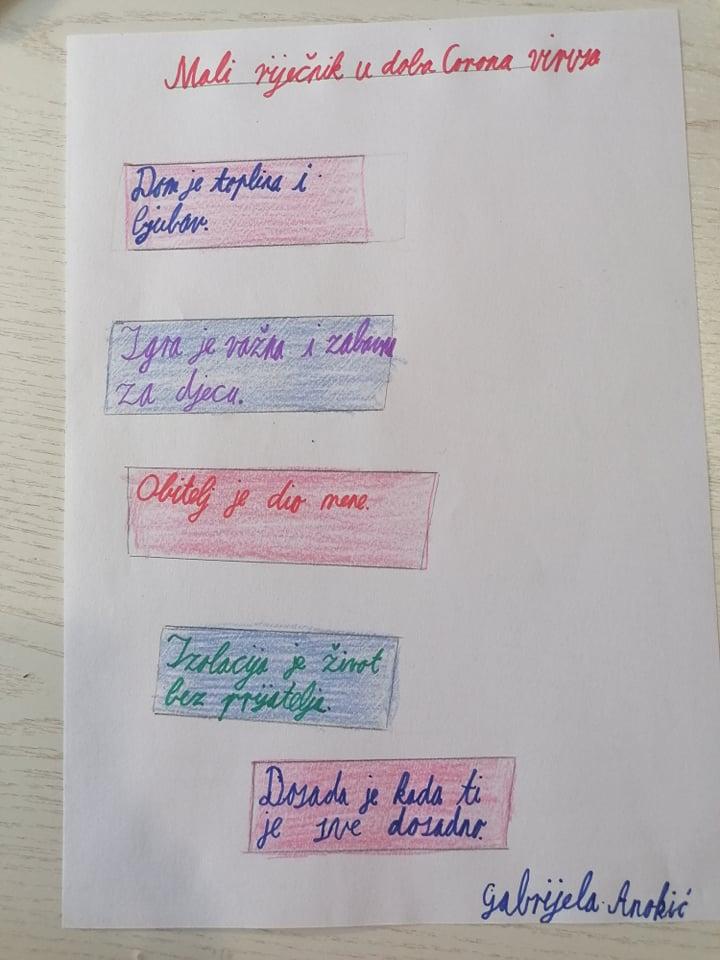 Mali riječnik u doba Corona virusa
Dom je toplina i
ljubav.
Igra je važna i zabavna
za djecu.
Obitelj je dio mene.
Izolacija je život
bez prijatelja.
Dosada je kada ti
je sve dosadno.
Gabrijela Anokić